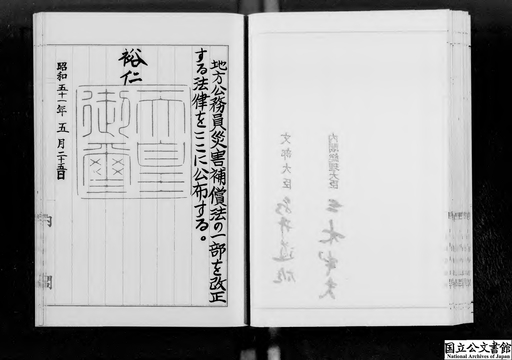 地方公務員災害補償法の一部を改正
する法律をここに公布する。
裕仁
天皇
御璽
昭和五十一年五月二十五日
内閣
内閣総理大臣
三木武夫
文部大臣
永井道雄
国立公文書館
National Archives of Japan